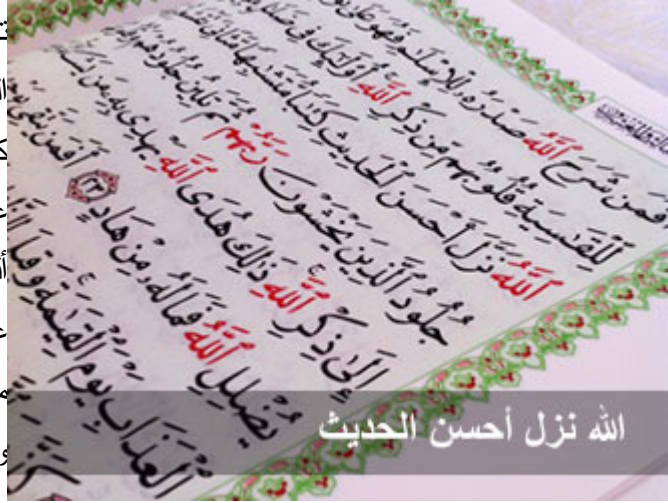 فمن شرح ٱلله صدره للإسلم فهو على
للقسية قلوبهم من ذكر ٱلله أولئك فى ضلل
ٱلله نزل أحسن ٱلحديث كتبا متشبها مثانى
جلود ٱلذين يخشون ربهم ثم تلين جلودهم
إلى ذكر ٱلله ذلك هدى ٱلله يهدى به من
يضلل ٱلله فما له من هاد ٢٣ أفمن يتقى
ٱلعذاب يوم ٱلقيمة وقيل
الله نزل أحسن الحديث